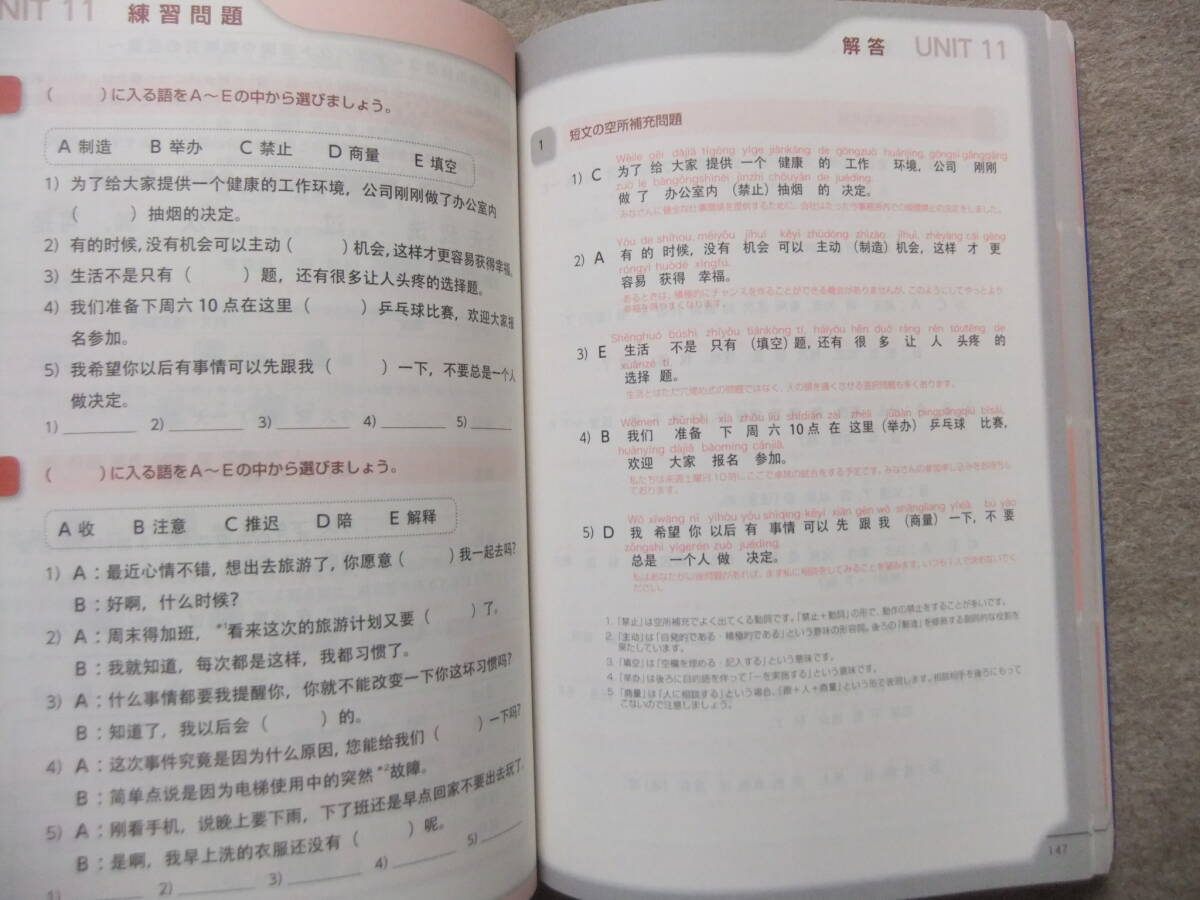 NIT 11 練習問題
( )に入る語をA～Eの中から選びましょう。
A 制造 B 举办 C 禁止 D 商量 E 填空
1) 为了给大家提供一个健康的工作环境，公司刚刚做了办公室内
( )抽烟的决定。
2) 有的时候，没有机会可以主动( )机会，这样才更容易获得幸福。
3) 生活不是只有( )题，还有很多让人头疼的选择题。
4) 我们准备下周六10点在这里( )乒乓球比赛，欢迎大家报
名参加。
5) 我希望你以后有事情可以先跟我( )一下，不要总是一个人
做决定。
1) 2) 3) 4) 5)
( )に入る語をA～Eの中から選びましょう。
A 收 B 注意 C 推迟 D 陪 E 解释
1) A：最近心情不错，想出去旅游了，你愿意( )我一起去吗？
B：好啊，什么时候？
2) A：周末得加班，*1看来这次的旅游计划又要( )了。
B：我就知道，每次都是这样，我都习惯了。
3) A：什么事情都要我提醒你，你就不能改变一下你这坏习惯吗？
B：知道了，我以后会( )的。
4) A：这次事件究竟是因为什么原因，您能给我们( )一下吗？
B：简单点说是因为电梯使用中的突然*2故障。
5) A：刚看手机，说晚上要下雨，下了班还是早点回家不要出去玩了。
B：是啊，我早上洗的衣服还没有( )呢。
1) 2) 3) 4) 5)
解答 UNIT 11
1 短文の空所補充問題
Wèile gěi dàjiā tígōng yíge jiànkāng de gōngzuò huánjìng, gōngsī gānggāng
1) C 为了 给 大家 提供 一个 健康 的 工作 环境，公司 刚刚
zuò le bàngōngshìnèi jìnzhǐ chōuyān de juédìng.
做 了 办公室内 (禁止) 抽烟 的 决定。
みなさんに健全な仕事環境を提供するために、会社はたった今事務所内での喫煙禁止の決定をしました。
Yǒu de shíhou, méiyǒu jīhuì kěyǐ zhǔdòng zhìzào jīhuì, zhèyàng cái gèng
2) A 有 的 时候，没有 机会 可以 主动 (制造) 机会，这样 才 更
róngyì huòdé xìngfú.
容易 获得 幸福。
あるときは、積極的にチャンスを作ることができる機会がありませんが、このようにしてやっとより
幸福を得やすくなります。
Shēnghuó búshì zhǐyǒu tiánkòng tí, háiyǒu hěn duō ràng rén tóuténg de
3) E 生活 不是 只有 (填空) 题，还有 很 多 让 人 头疼 的
xuǎnzé tí.
选择 题。
生活とはただ穴埋め式の問題ではなく、人の頭を痛くさせる選択問題も多くあります。
Wǒmen zhǔnbèi xià zhōu liù shídiǎn zài zhèli jǔbàn pīngpāngqiú bǐsài,
4) B 我们 准备 下 周 六 10点 在 这里 (举办) 乒乓球 比赛，
huānyíng dàjiā bàomíng cānjiā.
欢迎 大家 报名 参加。
私たちは来週土曜日10時にここで卓球の試合をする予定です。みなさんの参加申し込みをお待ちし
ております。
Wǒ xīwàng nǐ yǐhòu yǒu shìqing kěyǐ xiān gēn wǒ shāngliang yíxià, bú yào
5) D 我 希望 你 以后 有 事情 可以 先 跟 我 (商量) 一下，不 要
zǒngshì yígerén zuò juédìng.
总是 一个人 做 决定。
私はあなたが以後問題があれば、まず私に相談をしてみることを望みます。いつも1人で決めないでく
ださい。
1.「禁止」は空所補充でよく出てくる動詞です。「禁止＋動詞」の形で、動作の禁止をすることが多いです。
2.「主动」は「自発的である・積極的である」という意味の形容詞。後ろの「制造」を修飾する副詞的な役割を
果たしています。
3.「填空」は「空欄を埋める・記入する」という意味です。
4.「举办」は後ろに目的語を伴って「～を実施する」という意味です。
5.「商量」は「人に相談する」という場合、「跟＋人＋商量」という形で表現します。相談相手を後ろにもって
こないので注意しましょう。
147